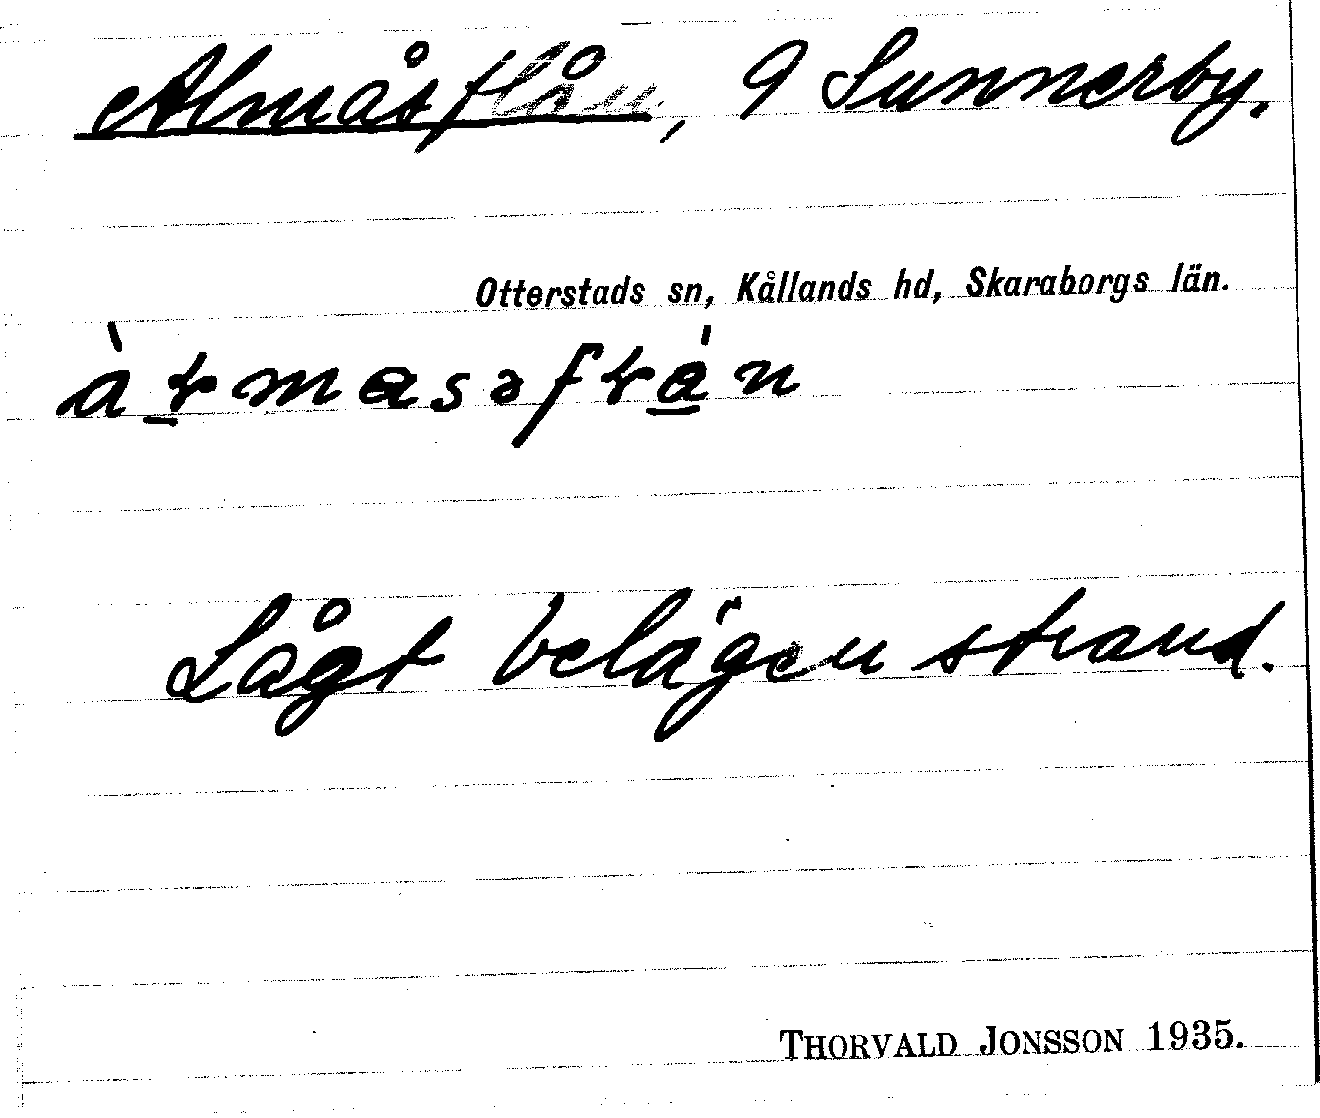 Almåsflån, 9 Sunnerby.
Otterstads sn, Kållands hd, Skaraborgs län.
Lågt belägen strand.
THORVALD JONSSON 1935.